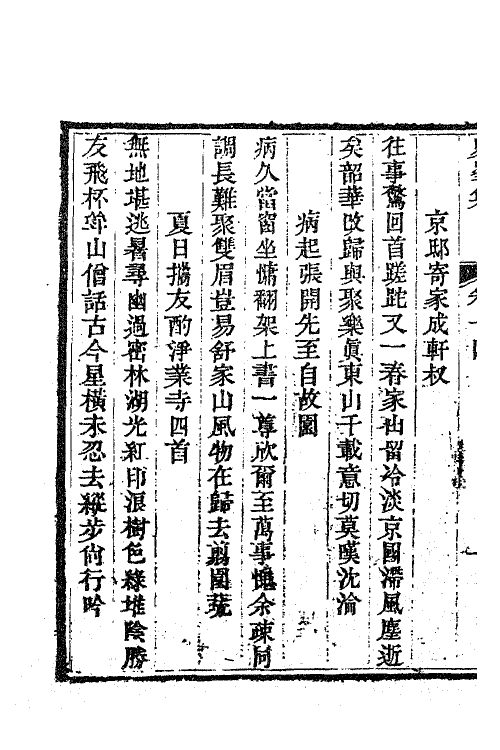 京邸寄家成軒叔
往事驚回首蹉跎又一春家山留冷淡京國滯風塵逝
矣韶華改歸與聚樂眞東山千載意切莫嘆沈淪
病起張開先至自故園
病久當窗坐慵翻架上書一尊欣爾至萬事愧余疎同
調長難聚雙眉豈易舒家山風物在歸去翦園蔬
夏日攜友酌淨業寺四首
無地堪逃暑尋幽過密林湖光紅印浪樹色綠堆陰勝
友飛杯斝山僧話古今星橫未忍去縱步尙行吟